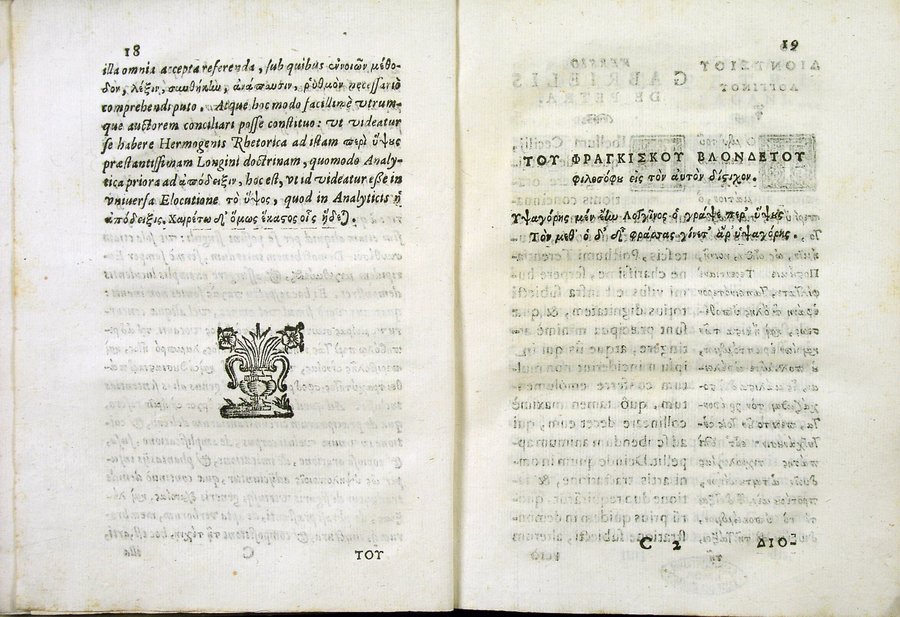 18
illa omnia accepta referenda, sub quibus ἐννοιῶν μέθο-
δον, λέξιν, συνθήκην, ἀνάπαυσιν, ῥυθμὸν necessariò
comprehendi puto. Atque hoc modo facillimè utrum-
que auctorem conciliari posse constituo: ut videatur
se habere Hermogenis Rhetorica ad istam περὶ ὕψους
præstantissimam Longini doctrinam, quomodo Analy-
tica priora ad ἀπόδειξιν, hoc est, ut id videatur esse in
universa Elocutione τὸ ὕψος, quod in Analyticis ἡ
ἀπόδειξις. Χαιρέτω δ' ὅμως ἕκαστος οἷς ἥδεται.
ΤΟΥ
19
ΤΟΥ ΦΡΑΓΚΙΣΚΟΥ ΒΛΟΝΔΕΤΟΥ
φιλοσόφου εἰς τὸν αὐτὸν δίστιχον.
Ὑψαγόρης μὲν Λογγῖνος ὁ γράψε περ' ὕψους
Τὸν μεθ' ὁ δ' φράσας γίνετ' ἄρ' ὑψαγόρης.
C 2
ΔΙΟ-